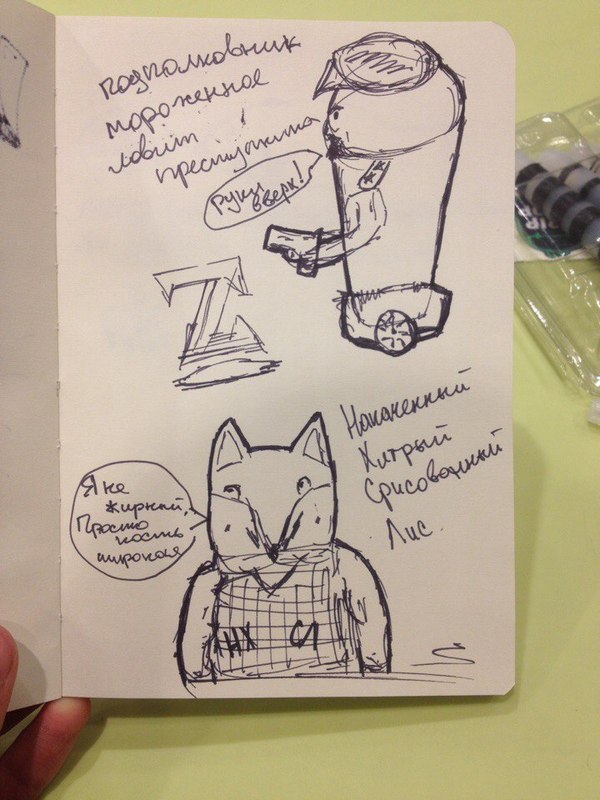 подполковник
мороженное
ловит
преступника
Руки
вверх!
Z
Накаченный
Хитрый
Срисованный
Лис.
Я не
жирный,
Просто
кость
широкая
НХ СЛ